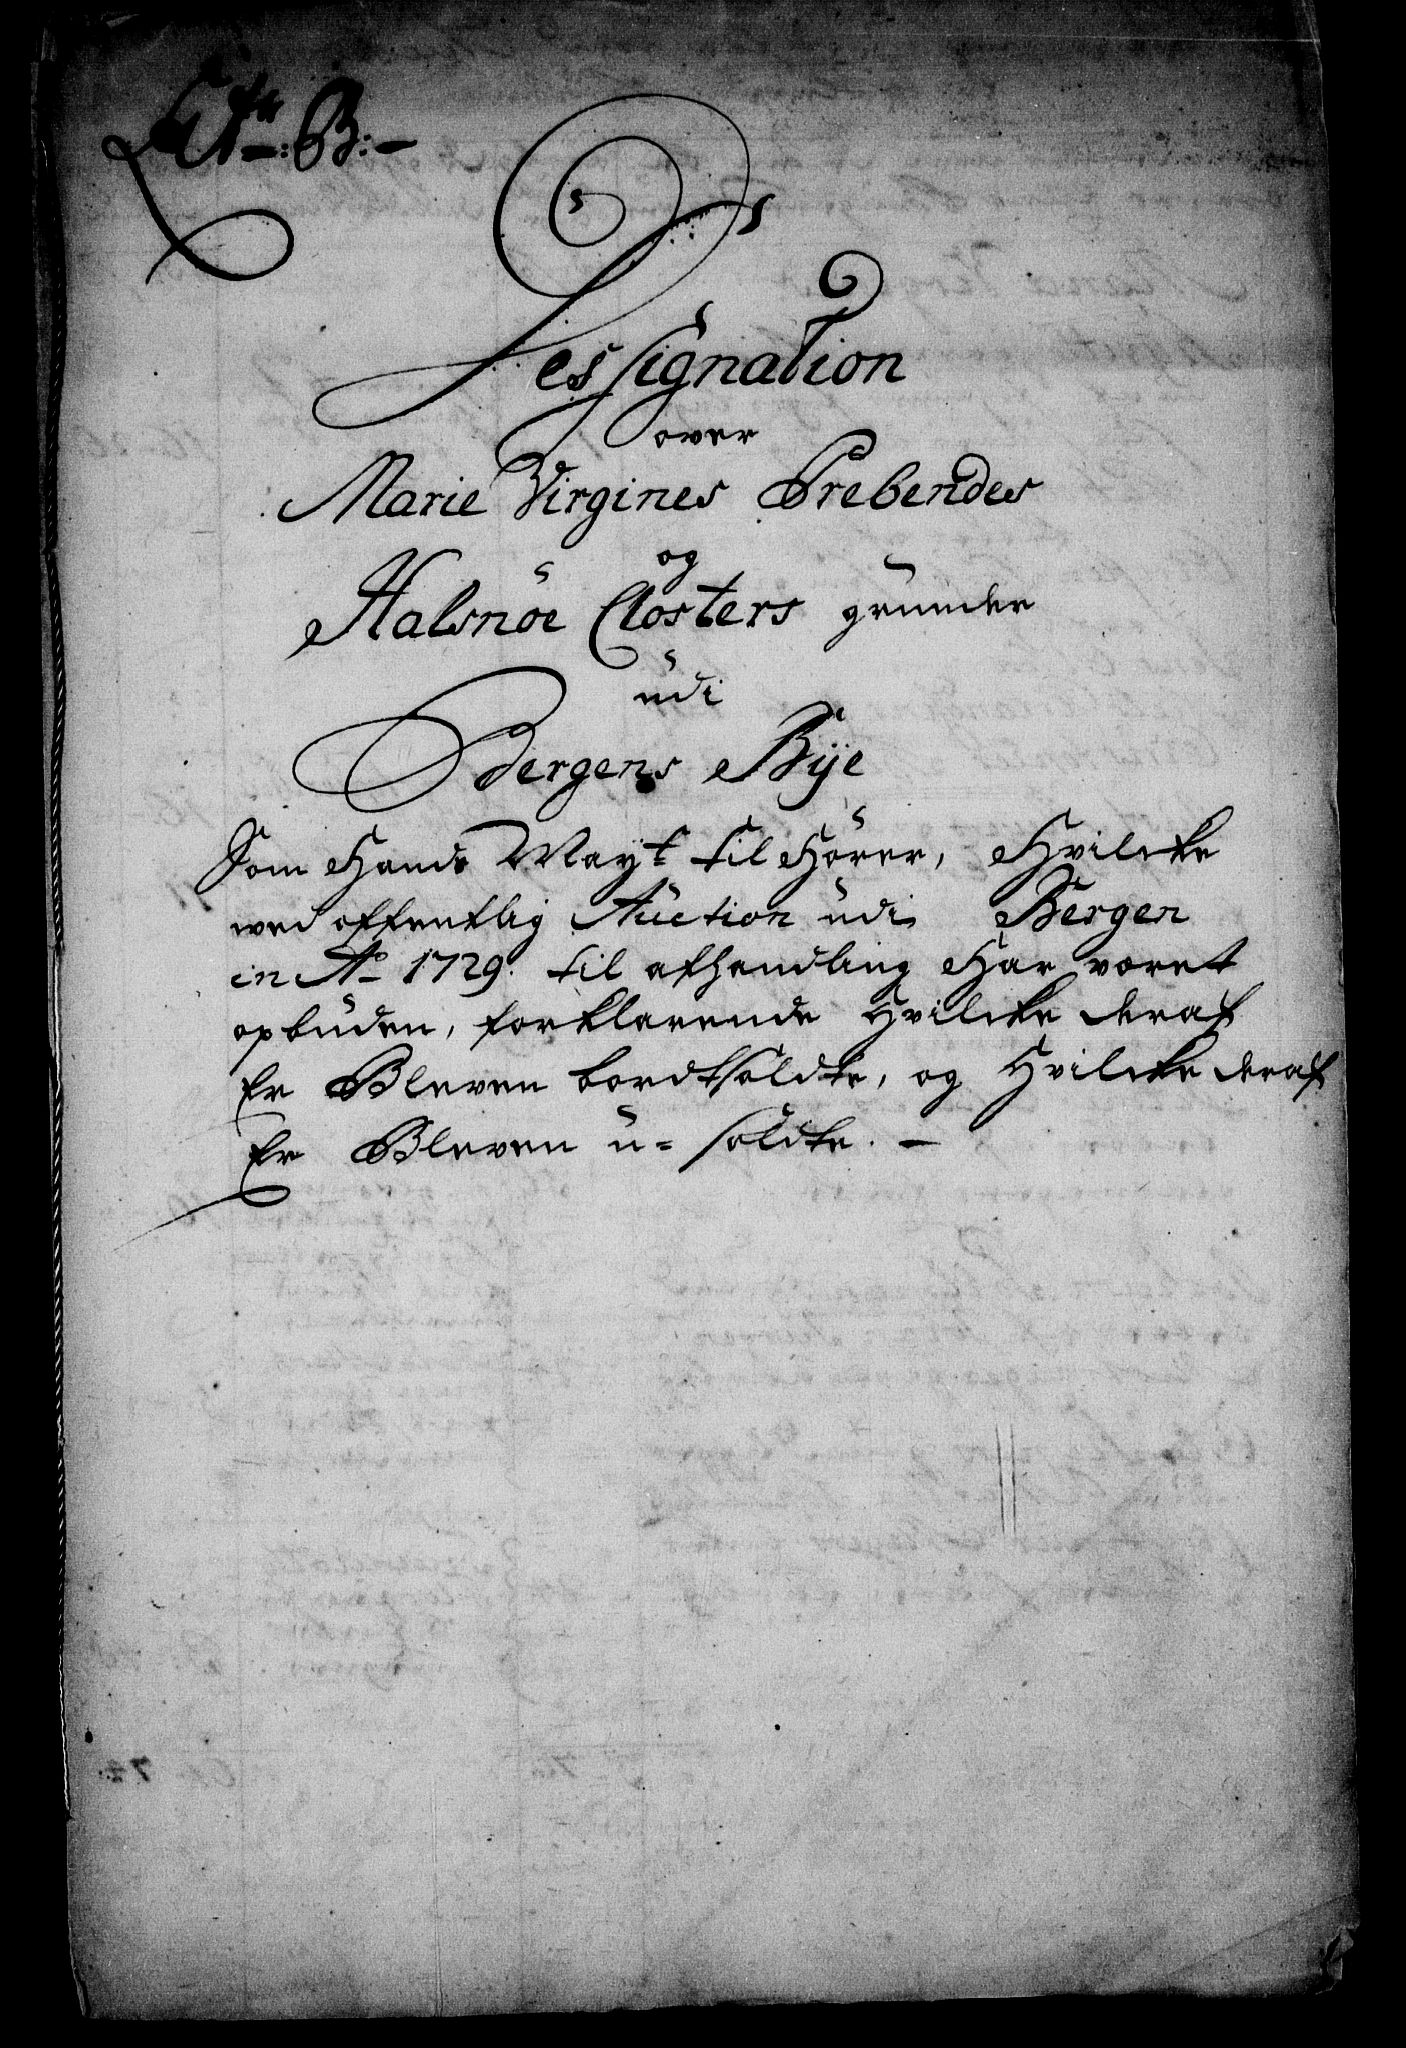 Litr: B:
Dessignation
over
Marie Virgines Prebendes
og
Halsnöe Closters grunder
udi
Bergens Bÿe
Som Hands Mayt til Hörer, Hvilcke
wed offentlig Auction udi Bergen
in Ao 1729. til afhandling Har været
opbuden, forklarende Hvilcke deraf
Er Bleven bordtsoldte, og Hvilcke deraf
Er Bleven u=soldte.